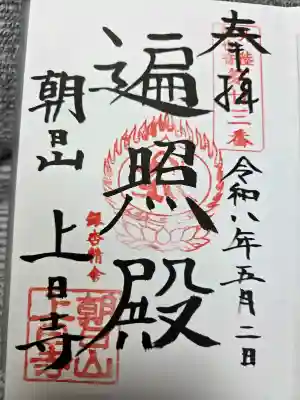 奉拝
令和八年五月二日
遍照殿
朝日山
上日寺
朝日山
上日寺